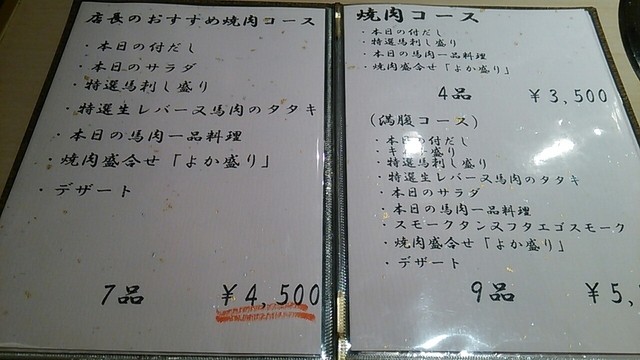 店長のおすすめ焼肉コース
・本日の付だし
・本日のサラダ
・特選馬刺し盛り
・特選生レバー又馬肉のタタキ
・本日の馬肉一品料理
・焼肉盛合せ「よか盛り」
・デザート
7品 ¥4,500
焼肉コース
・本日の付だし
・特選馬刺し盛り
・本日の馬肉一品料理
・焼肉盛合せ「よか盛り」
4品 ¥3,500
(満腹コース)
・本日の付だし
・特選馬刺し盛り
・特選生レバー又馬肉のタタキ
・本日のサラダ
・本日の馬肉一品料理
・スモークタン又フタエゴスモーク
・焼肉盛合せ「よか盛り」
・デザート
9品 ¥5,